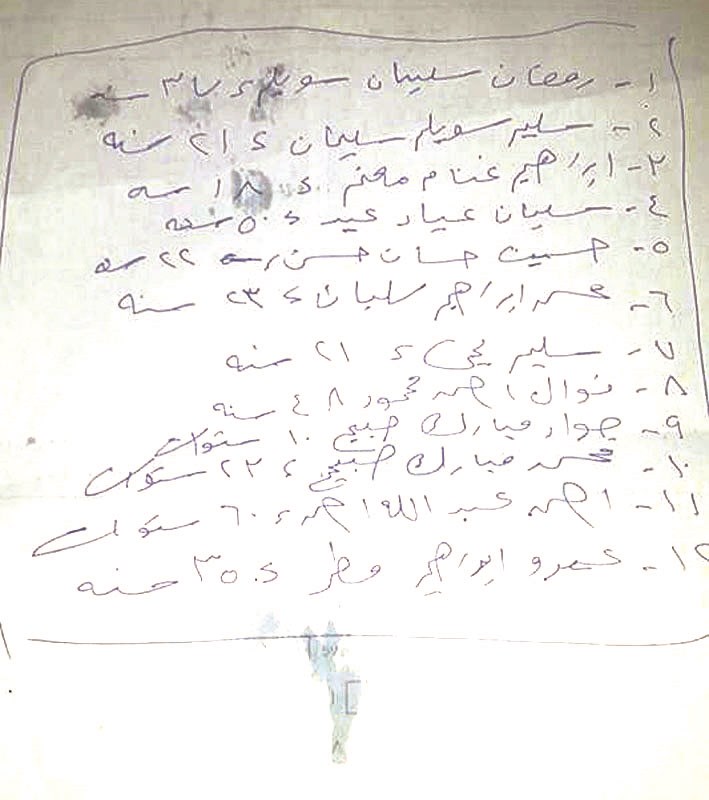 ١- رمضان سليمان سويلم ، ٣٧ سنه
٢- سلير سويلم سليمان ، ٢١ سنه
٣- ابراهيم غنام مغنم ، ١٨ سنه
٤- سليمان عياد عيد ، ٥٠ سنه
٥- حسين حسان حسن ٢٢ سنه
٦- ابراهيم سلمان ، ٢٣ سنه
٧- سليم يحيى ، ٢١ سنه
٨- نوال احمد محمود ٤٨ سنه
٩- جواد مبارك صبيح ١٠ سنوات
١٠- محمد مبارك صبيح ، ٢٣ سنوات
١١- احمد عبد الله احمد ، ٦٠ سنوات
١٢- عمرو ابراهيم مطر ، ٣٥ سنه